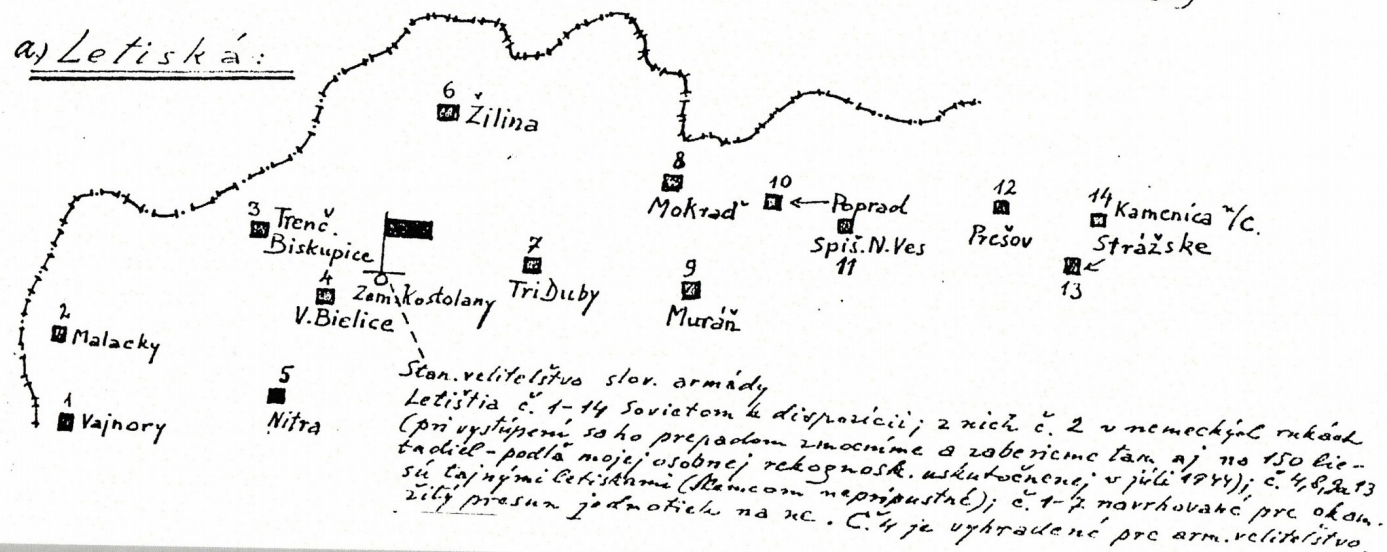 a.) Letiská:
6
Žilina
8
Mokraď
10
Poprad
Spiš. N. Ves
11
12
Prešov
14 Kamenica n/C.
Strážske
13
3 Trenč.
Biskupice
4
V. Bielice
Zem. Kostolany
7
Tri Duby
9
Muráň
2
Malacky
1
Vajnory
5
Nitra
Stan. velitelstvo slov. armády
Letištia č. 1-14 Sovietom k dispozícii; z nich č. 2 v nemeckých rukách
(pri vystúpení sa ho prepadom zmocníme a zaberieme tam aj na 150 lie-
tadiel - podľa mojej osobnej rekognosk. uskutočnenej v júli 1944); č. 4, 8, 9 a 13
sú tajnými letiskami (Nemcom neprípustné); č. 1-7 navrhované pre okam-
žitý presun jednotiek na ne. Č. 4 je vyhradené pre arm. velitelstvo.